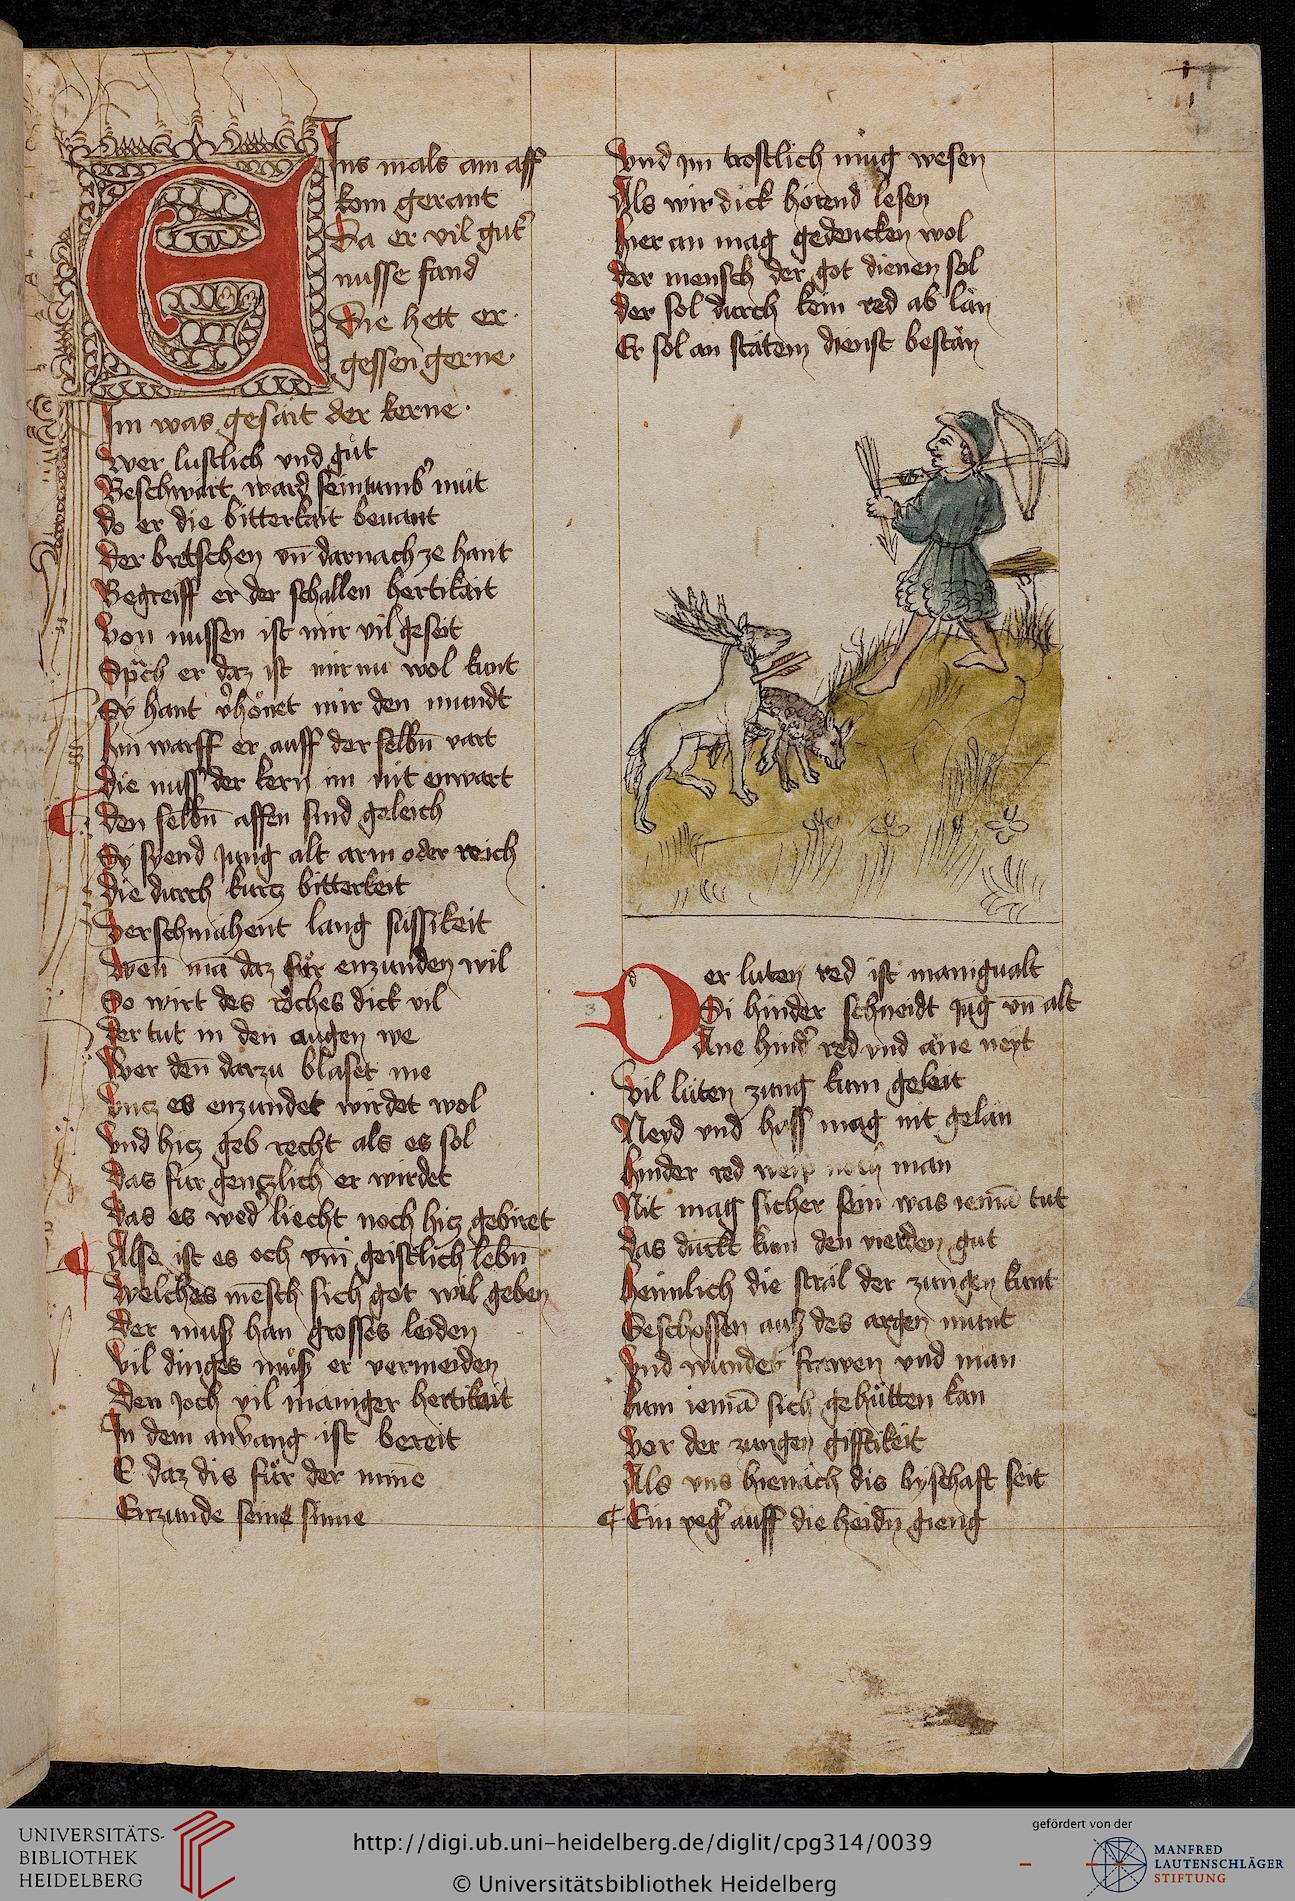 Ins mals ain aff
kom gerant
Da er vil gut̉
nusse fand
Die hett er
gessen gerne
Im was gesait der kerne
wer lustlich vnd guͤt
Beschwart ward sein tumb̉ mut
do er die bitterkait beuant
Der bretschen vn̄ darnach ze hant
Begreiff er der schallen hertikait
Von nussen ist mir vil geseit
Sprͣch er daz ist mir nu wol kunt
Sÿ hant v̉hoͤnet mir den mundt
Hin warff er auff der selbn̄ vart
die nuss der kern im nit enwart
Den selbn̄ affen sind geleich
Sÿ syend jung alt arm oder reich
die durch kurtz bitterkeit
verschmahent lang sussikeit
Wen̄ ma̅ daz fuͤr enzunden wil
So wirt des roͤches dick vil
der tut in den augen we
Wer den̄ darzu blaset me
vntz es enzundet wirdet wol
vnd hitz geb recht als es sol
das fur gentzlich er wirdet
das es wed̉ liecht noch hitz gebiret
Alse ist es och vm̄ geistlich lebn̄
welches mēsch sich got wil geben
Der muß han grosses leiden
vil dinges muͦß er vermeiden
Den joch vil maniger hertikait
In dem anvang ist bereit
E daz dis fuͤr der minē
Enzunde seine sinne
Vnd im trostlich mug wesen
Als wir dick hörend lesen
Hier an mag gedencken wol
der mensch der got dienen sol
der sol durch kein red ab län
Er sol an stätem dienst bestän
Der luten red ist manigualt
Si hinder schneidt jūg vn̄ alt
Ane hind̉ red vnd äne neyt
Vil lüten zung kum geleit
Neyd vnd hass mag nit gelän
hinder red man
Nit mag sicher sein was iema̅ tut
das dunckt kum den vierden gut
heimlich die sträl der zungen kunt
Geschossen auß des argen munt
Vnd wundet frawen vnd man
kum iema̅ sich gehuͤtten kan
vor der zungen gifftikeit
Als vns hienäch dis byschaft seit
Ein yeg̉ auff die heidn̄ gieng
3
UNIVERSITÄTS-
BIBLIOTHEK
HEIDELBERG
http://digi.ub.uni-heidelberg.de/diglit/cpg314/0039
© Universitätsbibliothek Heidelberg
gefördert von der
MANFRED
LAUTENSCHLÄGER
STIFTUNG